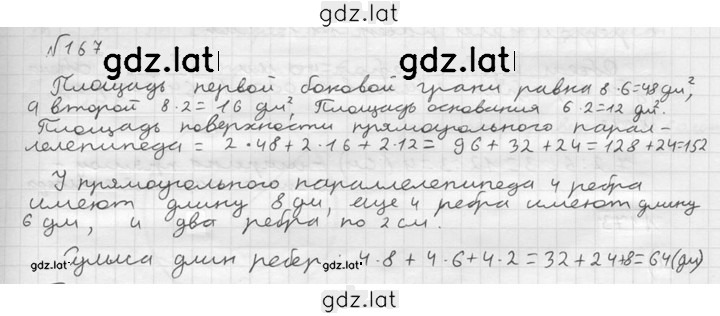 gdz.lat
№167
gdz.lat gdz.lat
Площадь первой боковой грани равна 8·6=48 дм²,
а второй 8·2=16 дм², Площадь основания 6·2=12 дм².
Площадь поверхности прямоугольного парал-
лелепипеда = 2·48+2·16+2·12= 96+32+24=128+24=152
У прямоугольного параллелепипеда 4 ребра
имеют длину 8 дм, еще 4 ребра имеют длину
6 дм, и два ребра по 2 см.
gdz.lat Сумма длин ребер: gdz.lat 4·8+4·6+4·2=32+24+8=64(дм) gdz.lat
gdz.lat